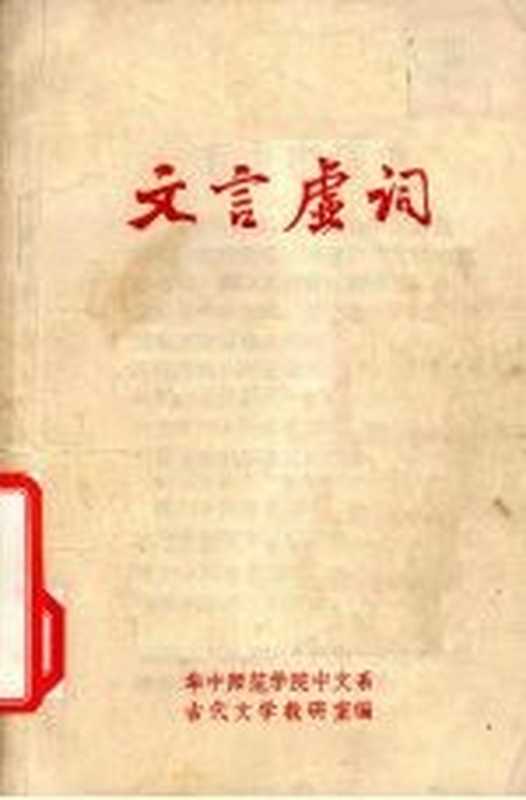 文言虚词
华中师范学院中文系
古代文学教研室编